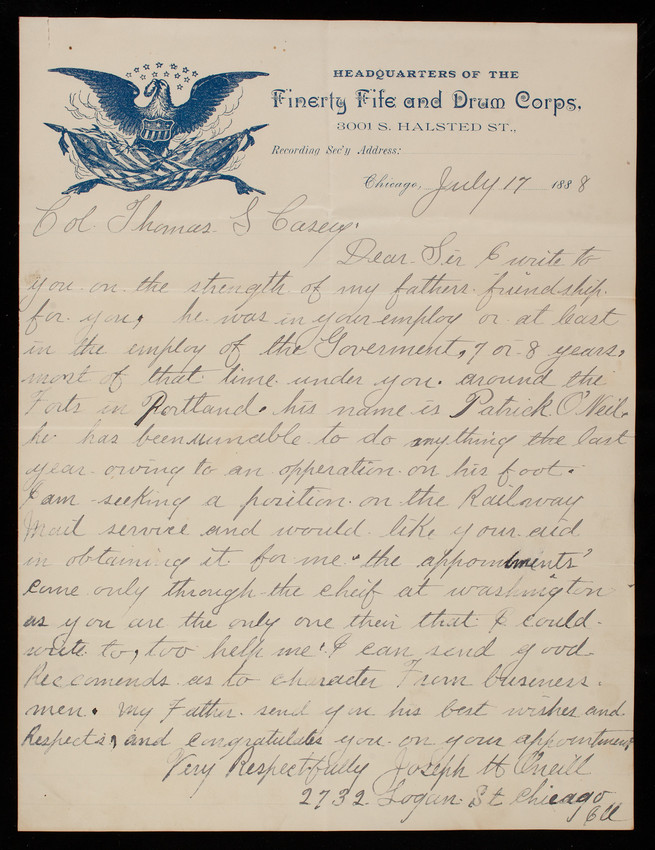 HEADQUARTERS OF THE
Finerty Fife and Drum Corps,
3001 S. HALSTED ST.,
Recording Sec'y Address:
Chicago, July 17 1888
Col. Thomas. S Casey.
Dear. Sir I write to
you. on. the strength. of my fathers. friendship.
for. you, he. was in your employ or. at least
in the employ of the Goverment, 7 or 8 years,
most of that time. under you. around the
Forts in Portland. his name is Patrick. O'Neil.
he has been unable. to do anything the last
year. owing to an opperation. on his foot.
I am seeking a position. on the Railoway
Mail service and would. like your aid
in obtaining it for me. the appointments
come only through the cheif at washington
as you are the only one their that I could.
write to, too help me. I can send good.
Reccomends as to character From business.
men. My Father. send you his best wishes and.
Respects, and congratulates you on your appointment
Very Respectfully Joseph H O'neill
2732 Logan. St Chicago
Ill